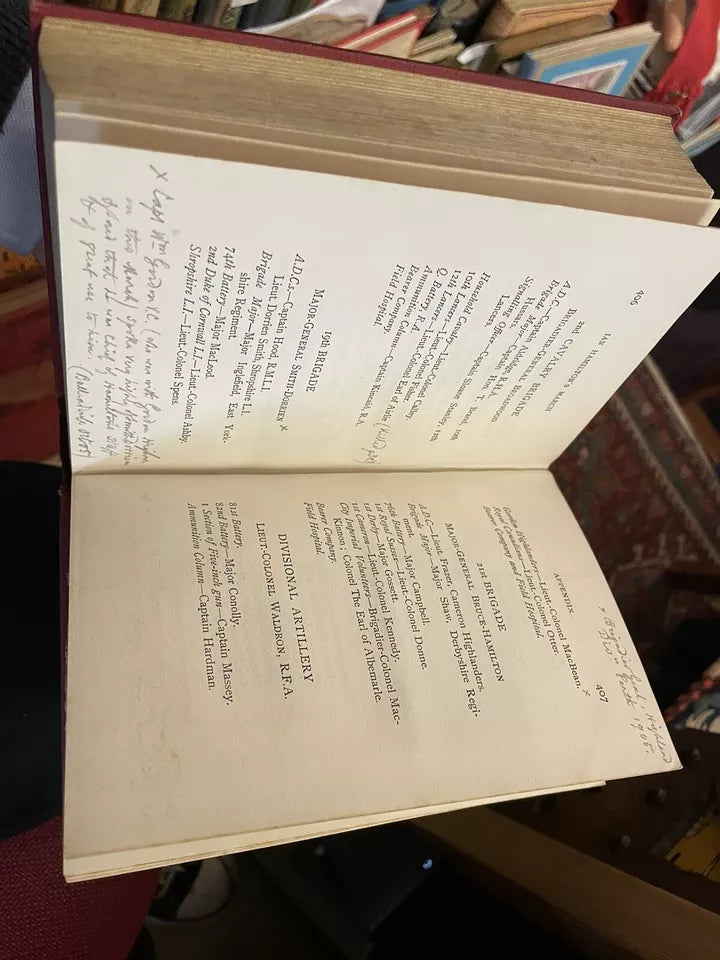 406
IAN HAMILTON'S MARCH
2nd CAVALRY BRIGADE
BRIGADIER-GENERAL BROADWOOD
A.D.C.—Captain
Brigade Major
Hussars.
Signalling Officer—Captain Hon. T. 10th
Lancers.
Household Cavalry—
10th Hussars—
12th Lancers—Lieut.-Colonel
Q. Battery—
Ammunition Column—Captain Kinnaird, R.A.
Bearer Company.
Field Hospital.
19th BRIGADE
MAJOR-GENERAL SMITH-DORRIEN x
A.D.C.s.—Captain Hood, R.M.L.I.
Lieut. Dorrien Smith, Shropshire L.I.
Brigade Major—Major Inglefield, East York-
shire Regiment.
74th Battery—Major MacLeod.
2nd Duke of Cornwall L.I.—Lieut.-Colonel Ashby.
Shropshire L.I.—Lieut.-Colonel Spens.
x Capt Wm Gordon VC (who was with Gordon Highrs
on this March) spoke very highly
that he was Chief of Hamilton's Staff
& of great use to him.
APPENDIX 407
x Brigadier Highland
1905.
Gordon Highlanders—Lieut.-Colonel MacBean. x
Royal Canadians—Lieut.-Colonel Otter.
Bearer Company and Field Hospital.
21st BRIGADE
MAJOR-GENERAL BRUCE-HAMILTON
A.D.C.—Lieut. Frazer, Cameron Highlanders.
Brigade Major—Major Shaw, Derbyshire Regi-
ment.
76th Battery—Major Campbell.
1st Royal Sussex—Lieut.-Colonel Donne.
1st Derby—Major Gossett.
1st Cameron—Lieut.-Colonel Kennedy.
City Imperial Volunteers—Brigadier-Colonel Mac-
Kinnon; Colonel The Earl of Albemarle.
Bearer Company.
Field Hospital.
DIVISIONAL ARTILLERY
LIEUT.-COLONEL WALDRON, R.F.A.
81st Battery.
82nd Battery—Major Conolly.
1 Section of Five-inch gun—Captain Massey.
Ammunition Column—Captain Hardman.